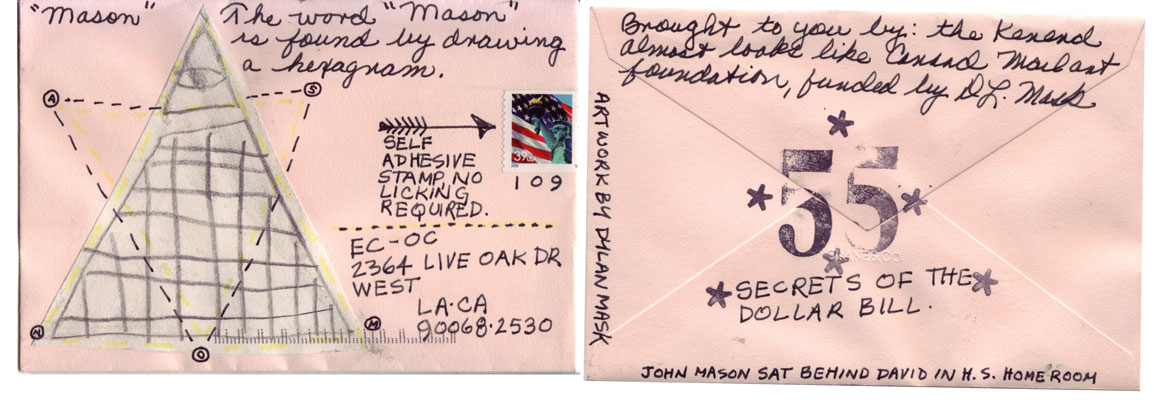 "Mason"
The word "Mason"
is found by drawing
a hexagram.
A
S
SELF
ADHESIVE
STAMP, NO
LICKING
REQUIRED.
39
109
EC-OC
2364 LIVE OAK DR
WEST
LA·CA
90068·2530
N
M
O
Brought to you by: the
almost looks like
foundation, funded by D.L. Mask
ARTWORK BY DYLAN MASK
55
SECRETS OF THE
DOLLAR BILL.
JOHN MASON SAT BEHIND DAVID IN H.S. HOMEROOM